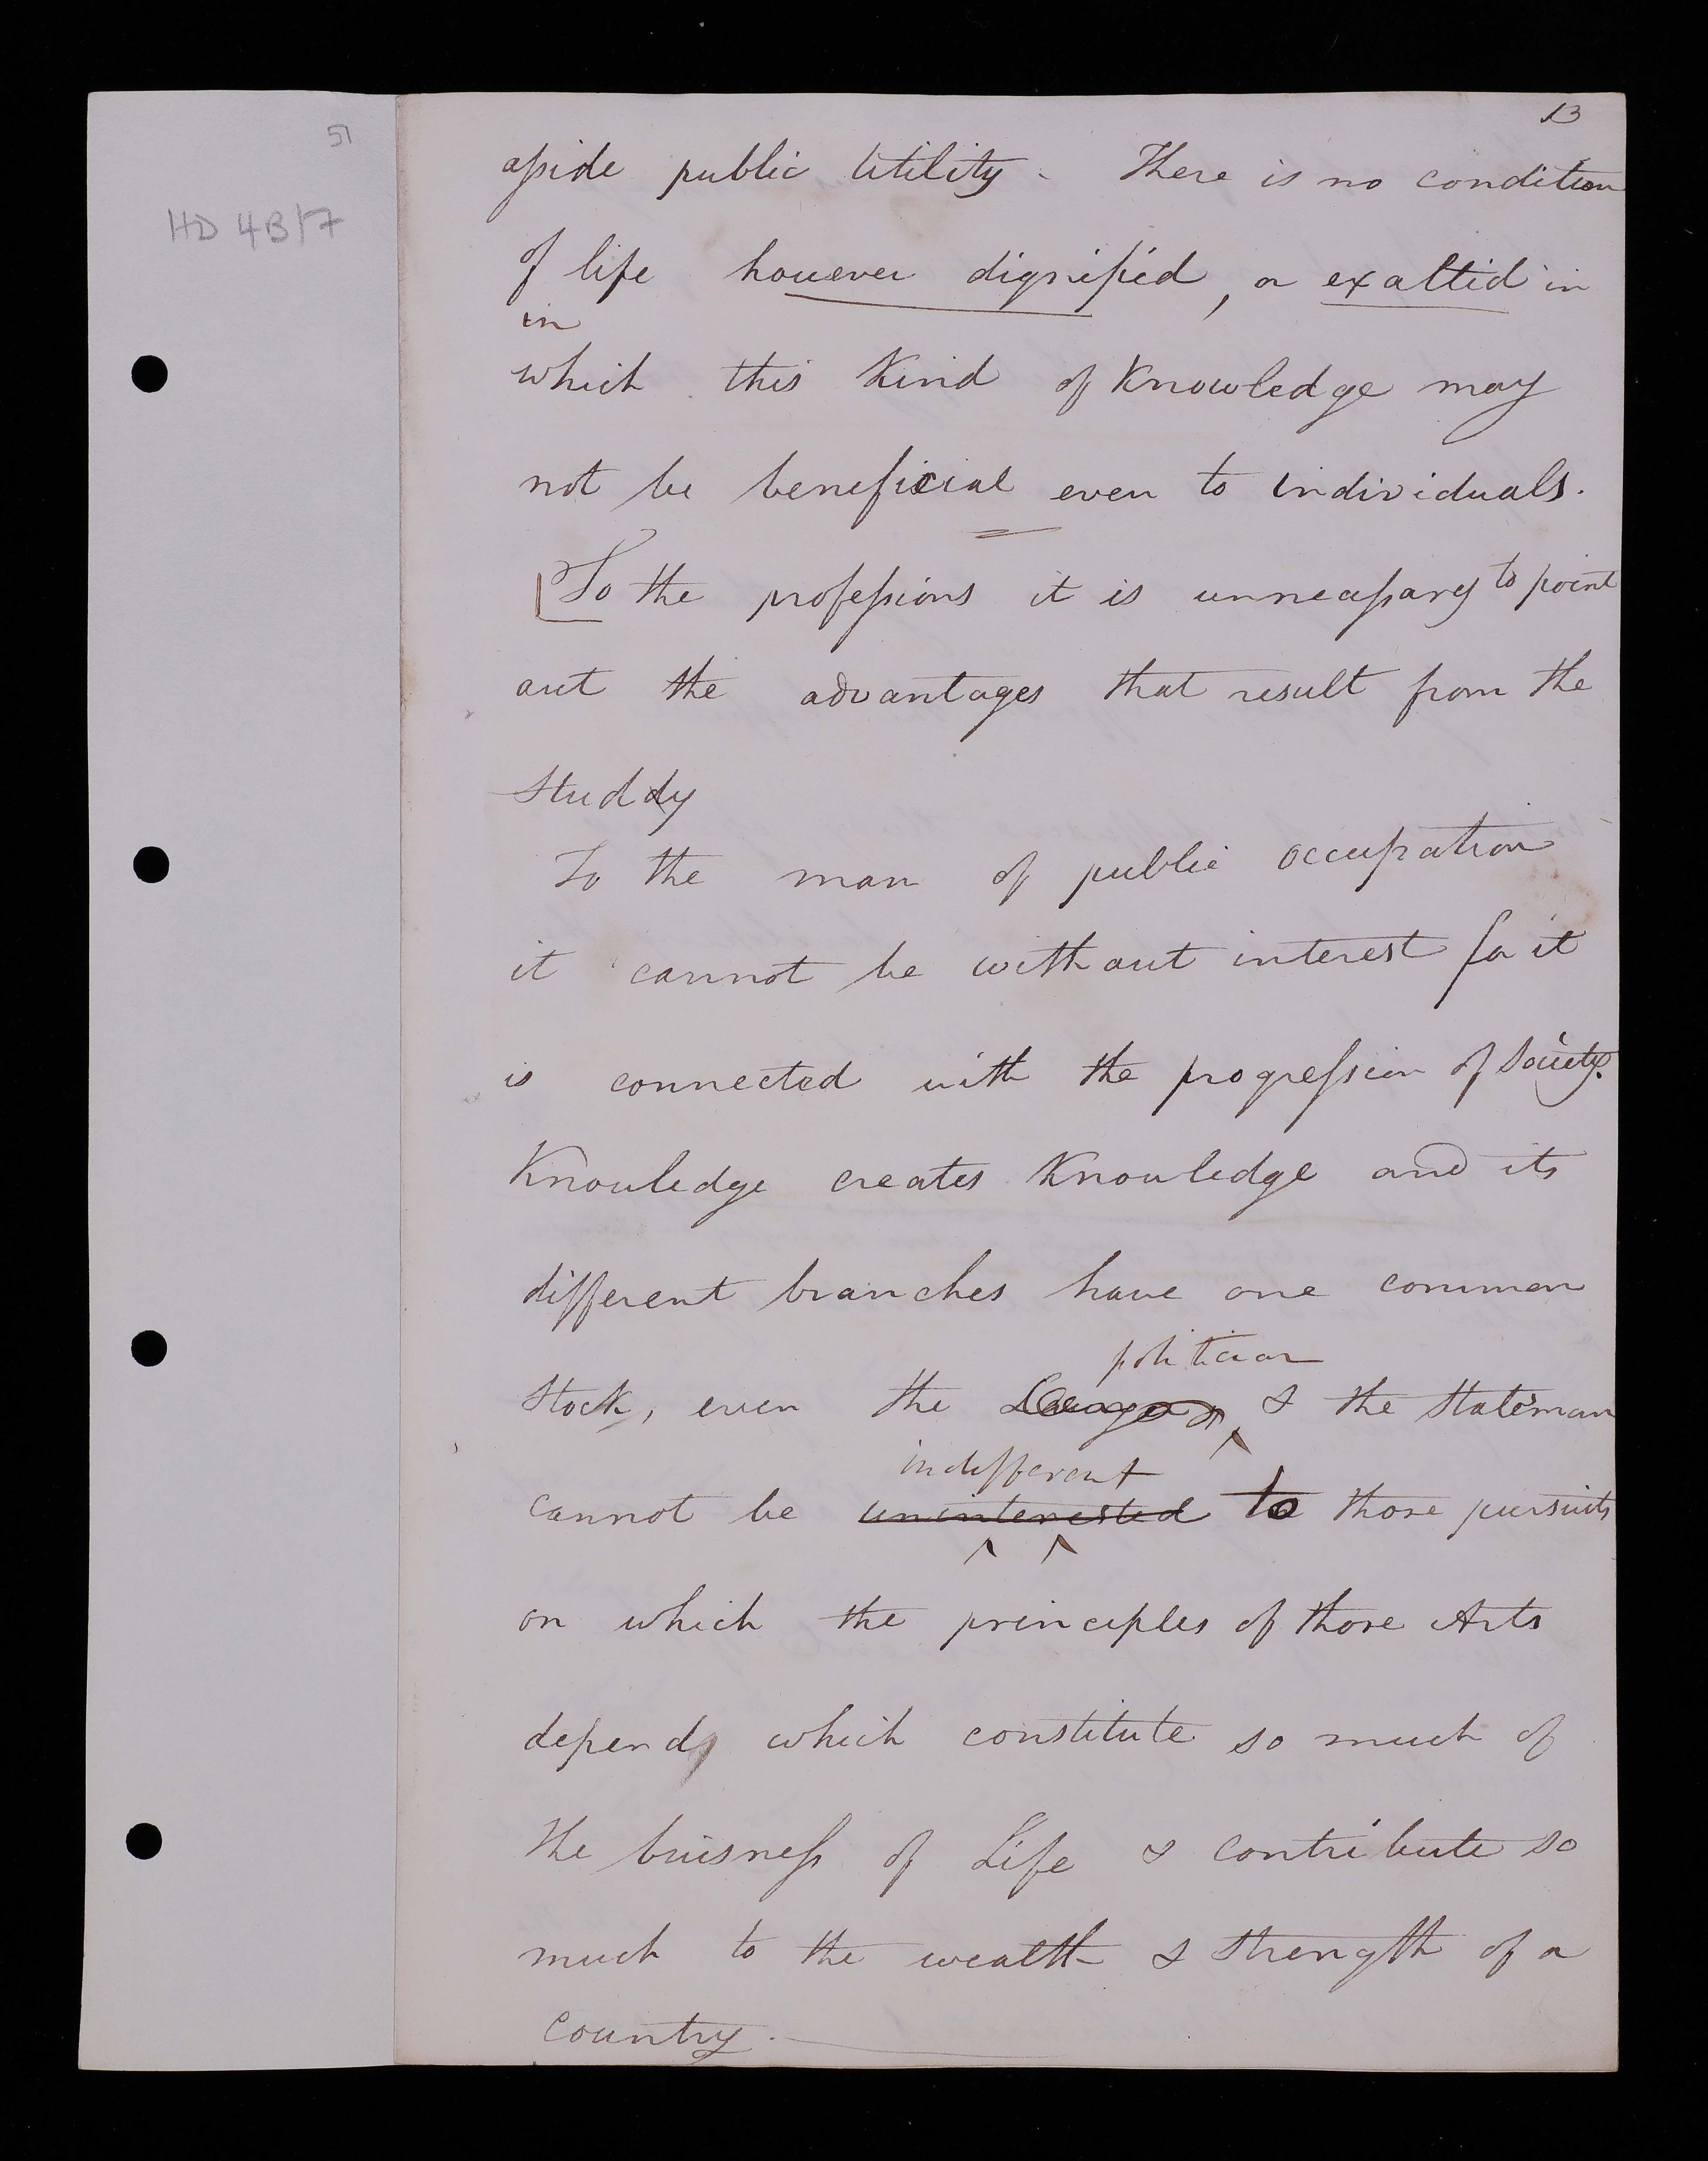 13
51
HD 4B/7
asside public Utility. There is no condition
of life however dignified, or exalted in
in
which this Kind of Knowledge may
not be beneficial even to individuals.
To the professions it is unnecassary to point
out the advantages that result from the
Studdy
To the man of public occupation
it cannot be without interest for it
is connected with the progression of Society.
Knowledge creates Knowledge and its
different branches have one common
politician
Stock, even the Lawyer & the Stateman
indifferent
cannot be uninterested to those pursuits
on which the principles of those Arts
depend, which constitute so much of
the buisness of Life & contribute so
much to the wealth & Strength of a
Country.